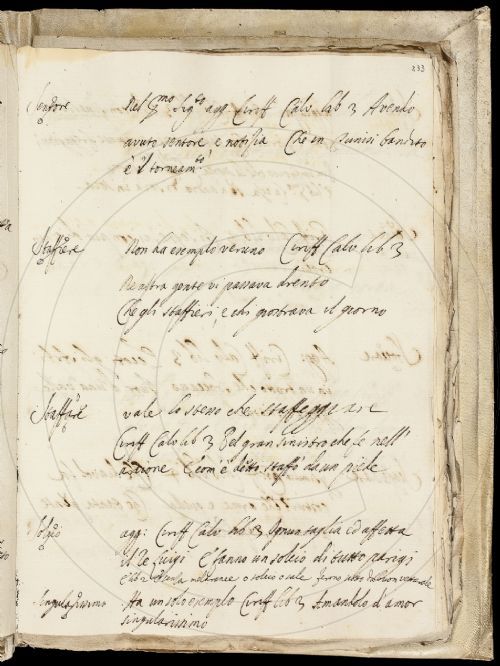 233
Sentore Nel signto agg Ciriff Calv lib 3 Avendo
avuto sentore e notizia Che in Tunisi bandito
è il torneamto
Staffiere Non ha esempio veruno Ciriff Calv lib 3
Nenstra gente vi passava drento
Che gli staffieri, e chi giostrava il giorno
Staffare vale lo stesso che staffeggiare
Ciriff Calv lib 3 Del gran sinistro che se nell'
arcione E com'è detto staffò da un piede
Solcio agg: Ciriff Calv lib 3 Ognun taglia ed affetta
il Re Luigi E fanno un solcio di tutto parigi
o solcio o sale
Singularissimo Ha un solo esempio Ciriff lib 3 Amandolo d'amor
singularissimo